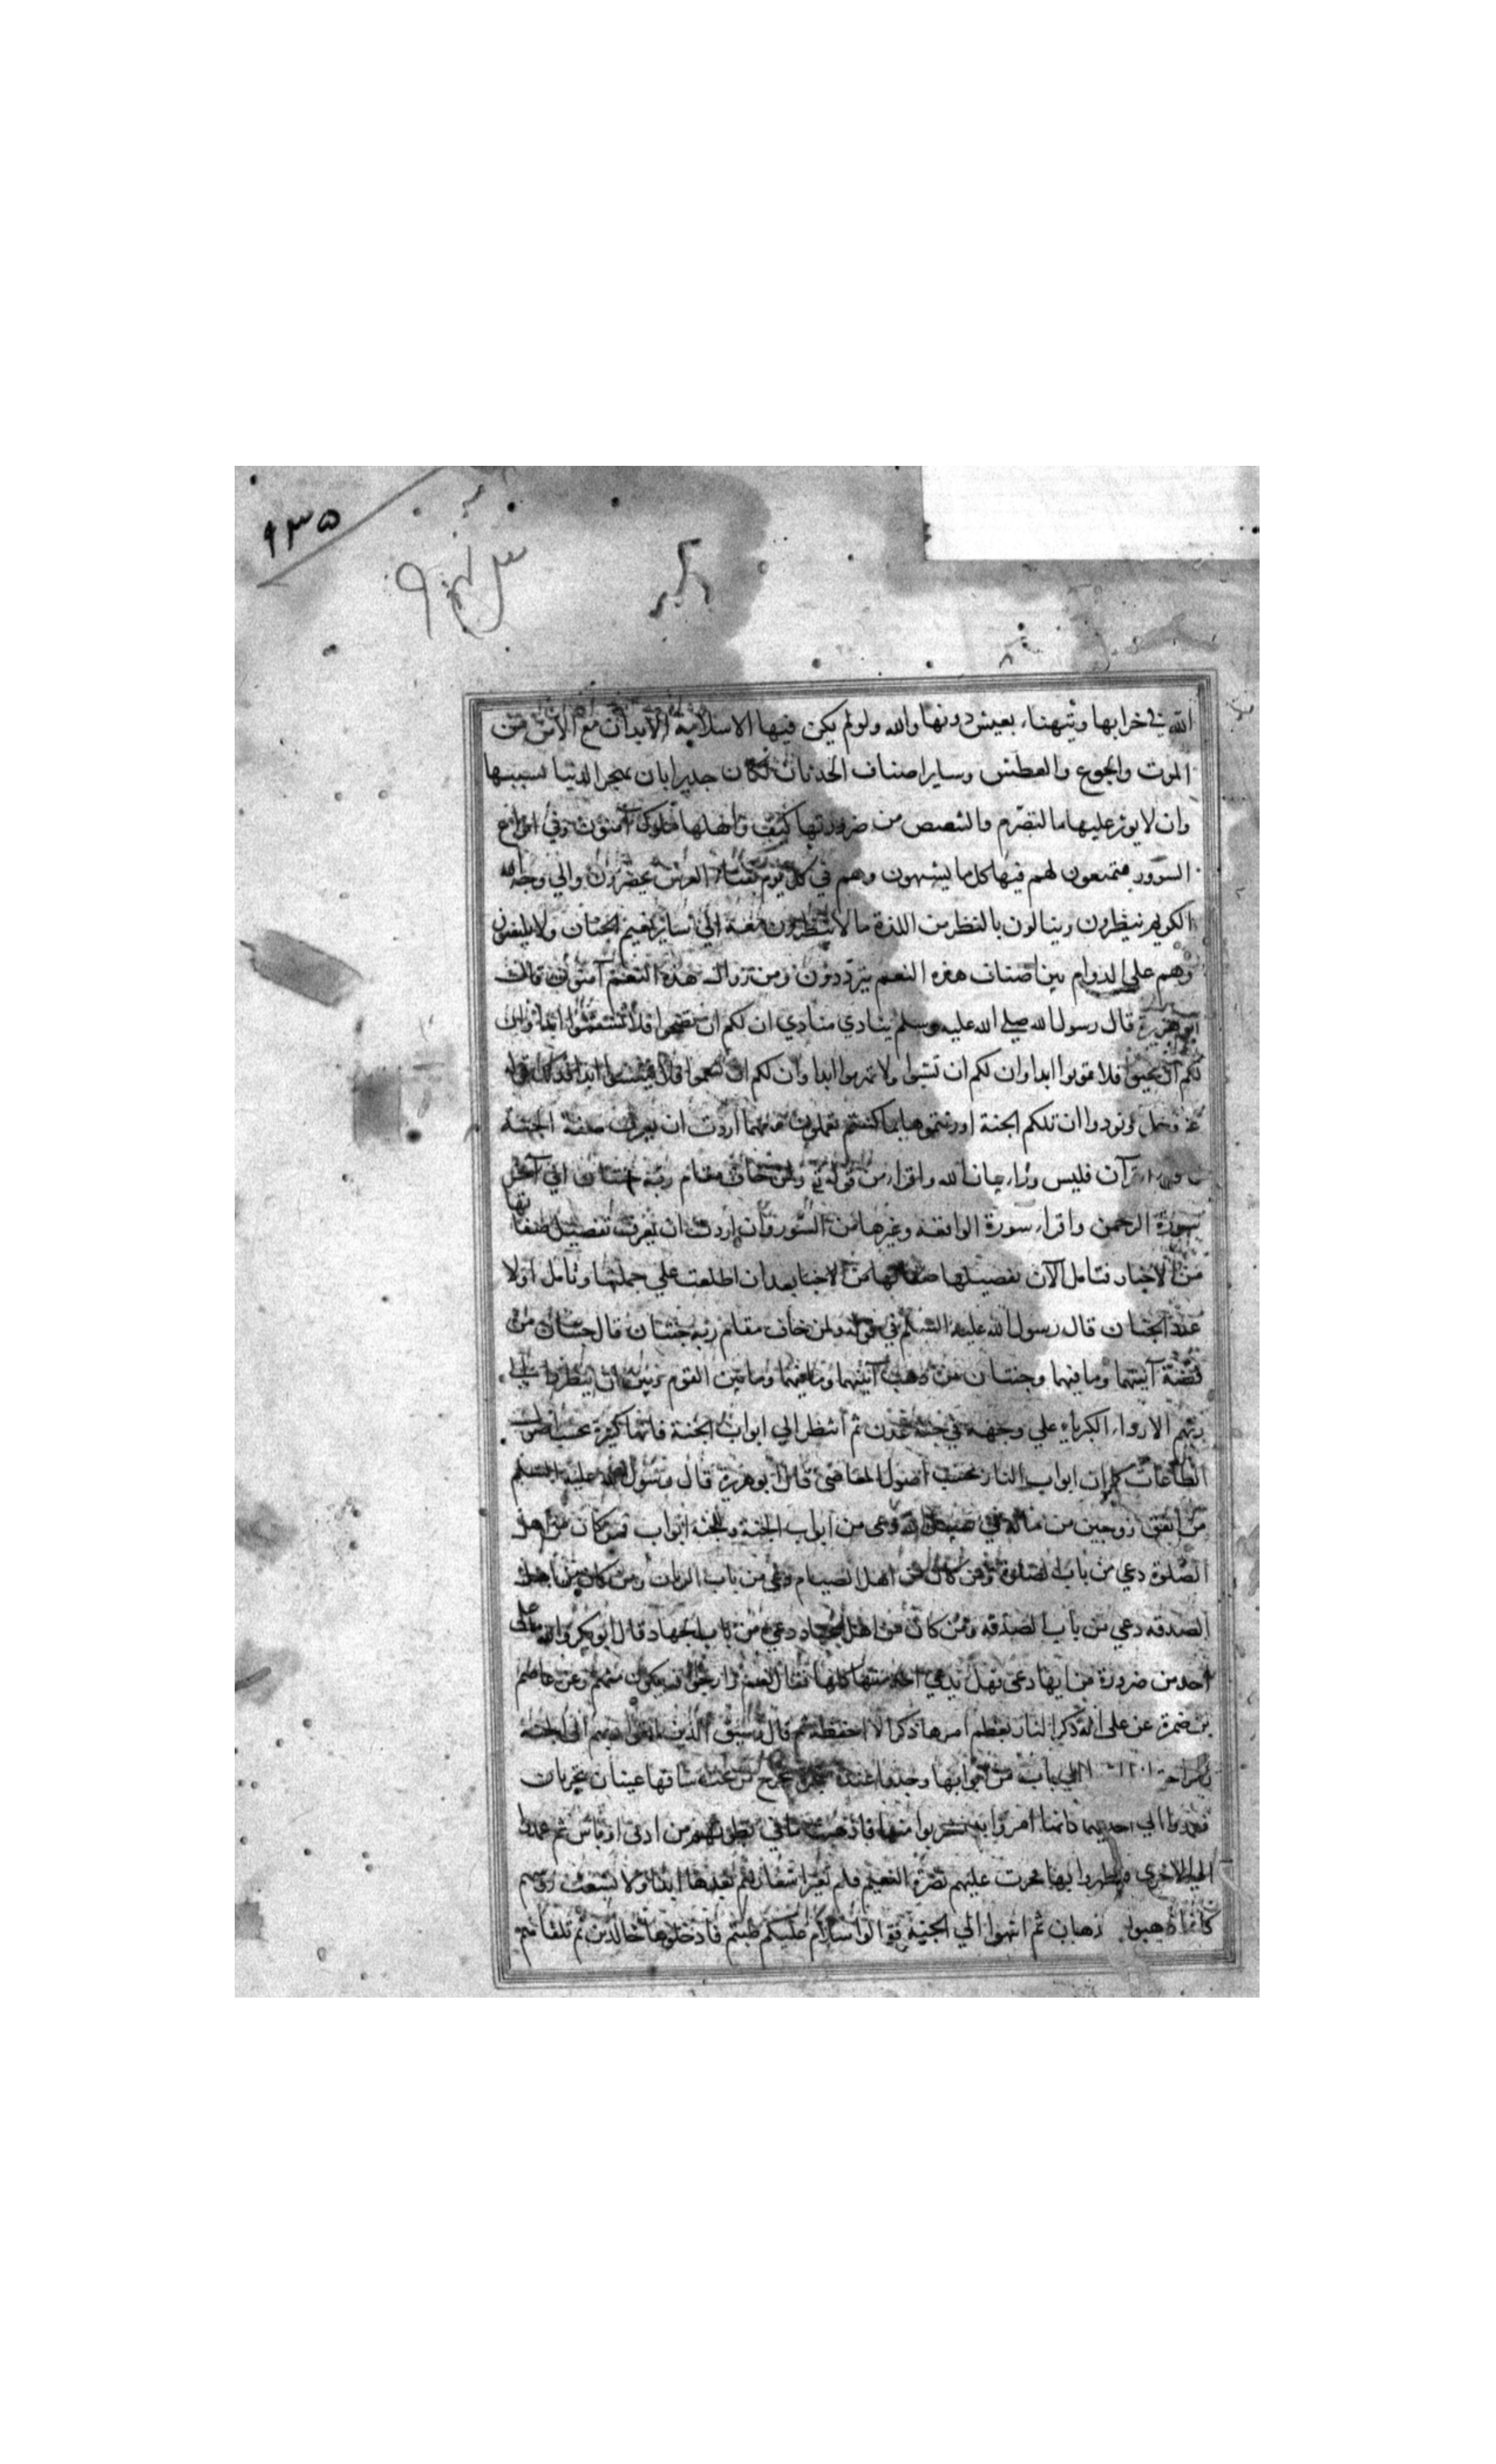 ٩٣٥
الله في خرابها ويتهنا بعيش دونها والله ولو لم يكن فيها الا سلامة الابدان مع الامن من
الموت والجوع والعطش وساير اصناف الحدثان لكان جديرا بان يهجر الدنيا بسببها
وان لا يوثر عليها ما التصرم والتنغص من ضرورتها كيف واهلها ملوك آمنون وفي انواع
السرور ممتعون لهم فيها كل ما يشتهون وهم في كل يوم بفناء العرش يحضرون والي وجه الله
الكريم ينظرون وينالون بالنظر من اللذة ما لا ينظرون معه الي ساير نعيم الجنان ولا يلتفتون
وهم علي الدوام بين اصناف هذه النعم يترددون ومن زوال هذه النعم آمنون قال
ابو هريرة قال رسول الله صلي الله عليه وسلم ينادي منادي ان لكم ان تصحوا فلا تسقموا ابدا وان
لكم ان تحيوا فلا تموتوا ابدا وان لكم ان تشبوا ولا تهرموا ابدا وان لكم ان تنعموا فلا ابدا فذلك قوله
عز وجل ونودوا ان تلكم الجنة اورثتموها بما كنتم تعملون مهما اردت ان تعرف صفة الجنة
القرآن فليس وراء بيان الله واقراء من قوله ولمن خاف مقام ربه جنتان الي آخر
سورة الرحمن واقراء سورة الواقعة وغيرها من السور وان اردت ان تعرف تفصيل صفاتها
من الاخبار فتامل الآن تفصيلها من الاخبار بعد ان اطلعت علي جملتها وتامل اولا
عدد الجنان قال رسول الله عليه السلم في قوله ولمن خاف مقام ربه جنتان قال جنتان من
فضة آنيتهما وما فيهما وجنتان من ذهب آنيتهما وما فيهما وما بين القوم وبين ان ينظروا الي
ربهم الا رداء الكبرياء علي وجهه في جنة عدن ثم انظر الي ابواب الجنة فانها كثيرة بحسب اصول
الطاعات كما ان ابواب النار بحسب اصول المعاصي قال ابو هريرة قال رسول الله عليه السلم
من انفق زوجين من ماله في سبيل الله دعي من ابواب الجنة وللجنة ابواب فمن كان من اهل
الصلوة دعي من باب الصلوة ومن كان من اهل الصيام دعي من باب الريان ومن كان من اهل
الصدقه دعي من باب الصدقه ومن كان من اهل الجهاد دعي من باب الجهاد قال ابو بكر والله ما علي
احد من ضرورة من ايها دعي فهل يدعي احد منها كلها فقال نعم وارجو ان يكون منهم وعن عاصم
بن ضمرة عن علي انه ذكر النار فعظم امرها ذكرا لا احفظه ثم قال وسيق الذين اتقوا ربهم الي الجنة
الي باب من ابوابها وجدوا عنده شجرة يخرج من تحت ساقها عينان تجريان
فعمدوا الي احديهما كانما امروا به فشربوا منها فاذهبت ما في بطونهم من اذي او باس ثم عمدوا
الي الاخري فتطهروا بها فجرت عليهم نضرة النعيم فلم تغير اشعارهم بعدها ابدا ولا تشعث روسهم
كانما دهنوا بدهان ثم انتهوا الي الجنة فقالوا سلام عليكم طبتم فادخلوها خالدين ثم تلقاهم